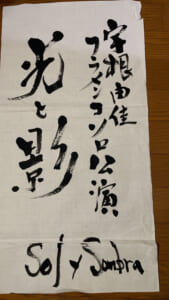 宇根由佳
フラメンコソロ公演
光と影
Sol y Sombra